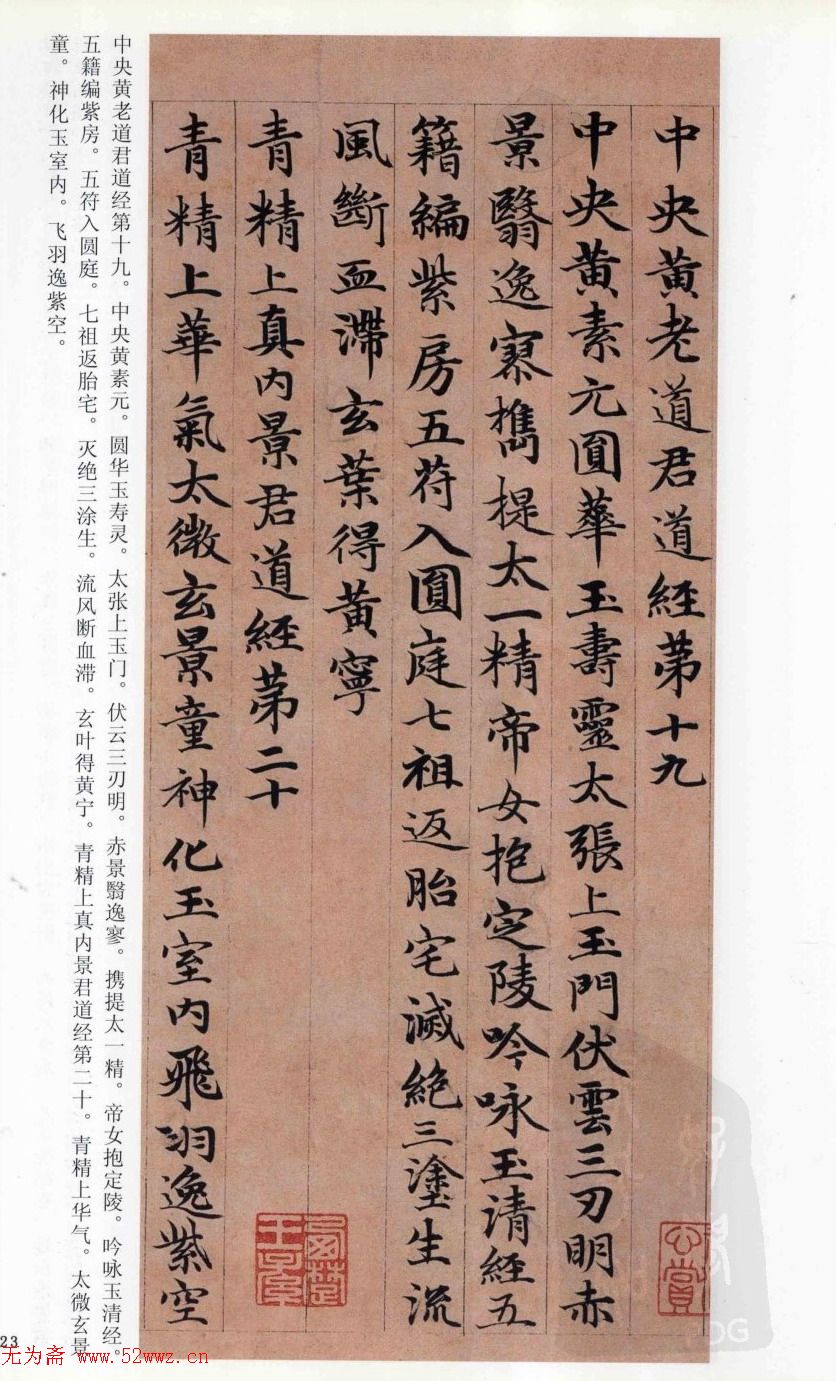 中央黄老道君道經第十九
中央黄素元圓華玉壽靈太張上玉門伏雲三刃明赤
景翳逸寥擕提太一精帝女抱定陵吟咏玉清經五
籍編紫房五符入圓庭七祖返胎宅滅絶三塗生流
風斷血滯玄葉得黄寧
青精上真内景君道經第二十
青精上華氣太微玄景童神化玉室内飛羽逸紫空
中央黄老道君道经第十九。中央黄素元。圆华玉寿灵。太张上玉门。伏云三刃明。赤景翳逸寥。携提太一精。帝女抱定陵。吟咏玉清经。
五籍编紫房。五符入圆庭。七祖返胎宅。灭绝三涂生。流风断血滞。玄叶得黄宁。青精上真内景君道经第二十。青精上华气。太微玄景
童。神化玉室内。飞羽逸紫空。
23
无为斋 www.52wwz.cn